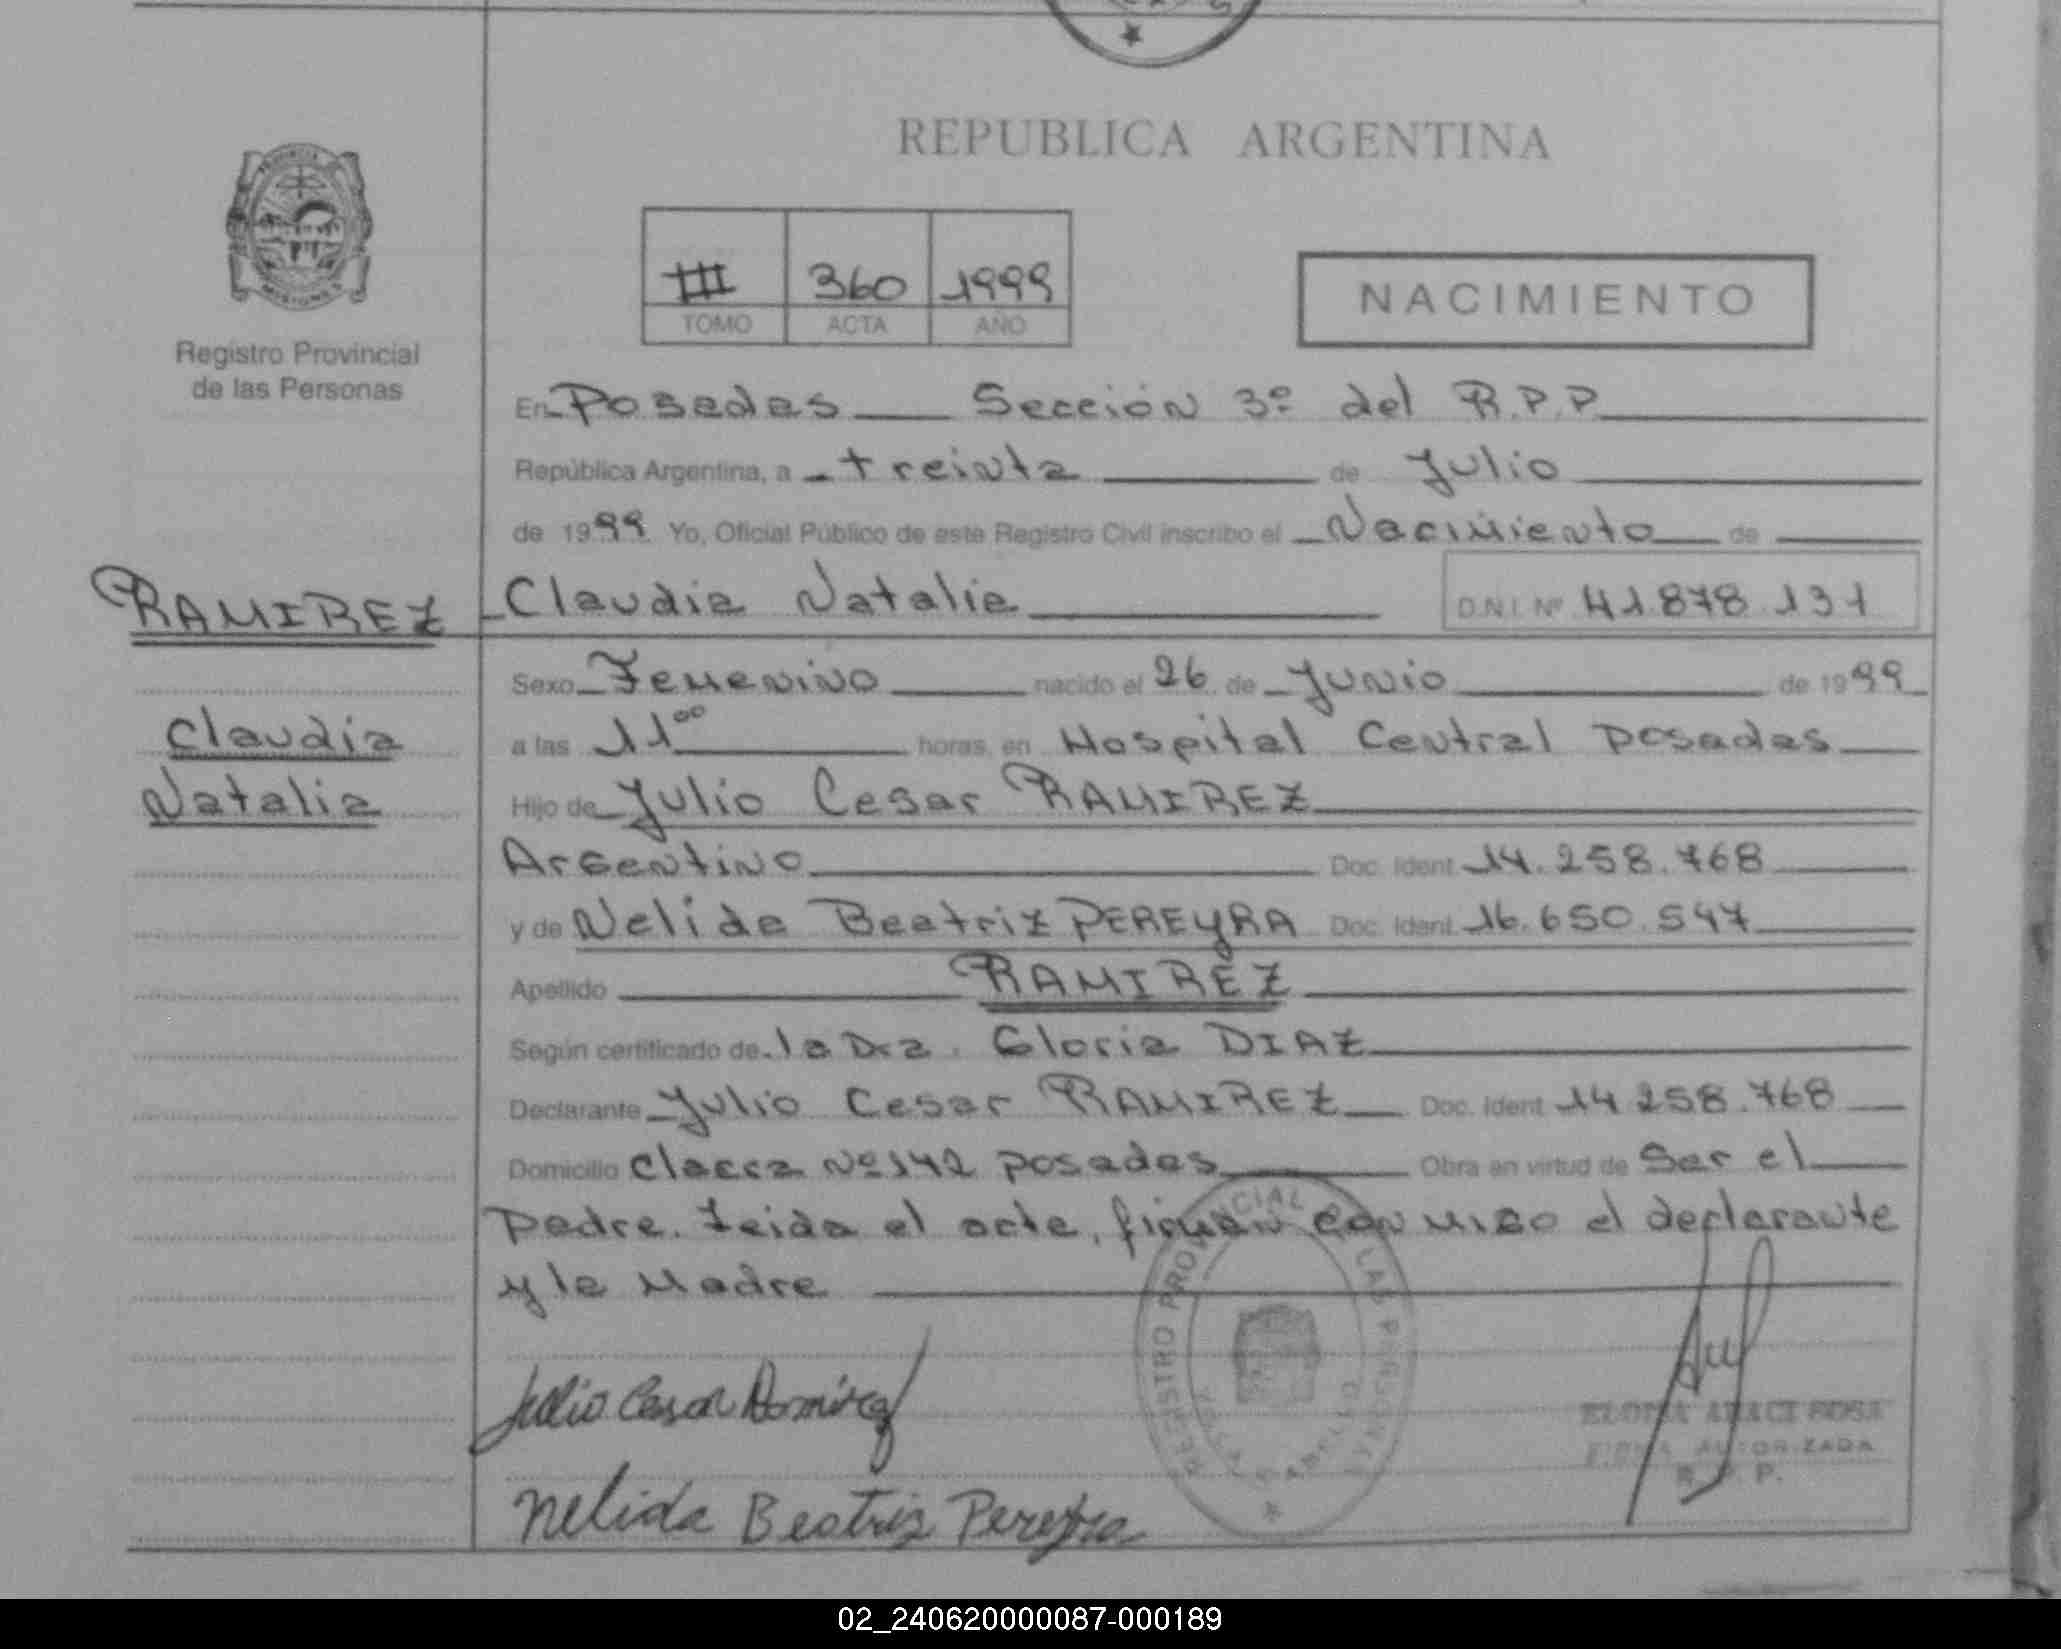 REPUBLICA ARGENTINA
PROVINCIA
MISIONES
Registro Provincial
de las Personas
III 360 1999
TOMO ACTA AÑO
NACIMIENTO
En Posadas Sección 3º del R.P.P
República Argentina, a treinta de Julio
de 1999 Yo, Oficial Público de este Registro Civil inscribo el Nacimiento de
RAMIREZ Claudia Natalia D.N.I. Nº 41.878.131
Sexo Femenino nacido el 26 de Junio de 1999
Claudia
a las 11⁰⁰ horas, en Hospital Central Posadas
Natalia
Hijo de Julio Cesar RAMIREZ
Argentino Doc. Ident. 14.258.768
y de Nelida Beatriz PEREYRA Doc. Ident. 16.650.547
Apellido RAMIREZ
Según certificado de la Dra. Gloria DIAZ
Declarante Julio Cesar RAMIREZ Doc. Ident 14.258.768
Domicilio Nº 142 Posadas Obra en virtud de Ser el
Padre. Leida el acta, firman conmigo el declarante
y la Madre
REGISTRO PROVINCIAL LAS PERSONAS
Julio Cesar Ramirez
SOSA
FIRMA AUTORIZADA
R. P. P.
Nelida Beatriz Pereyra
02_240620000087-000189